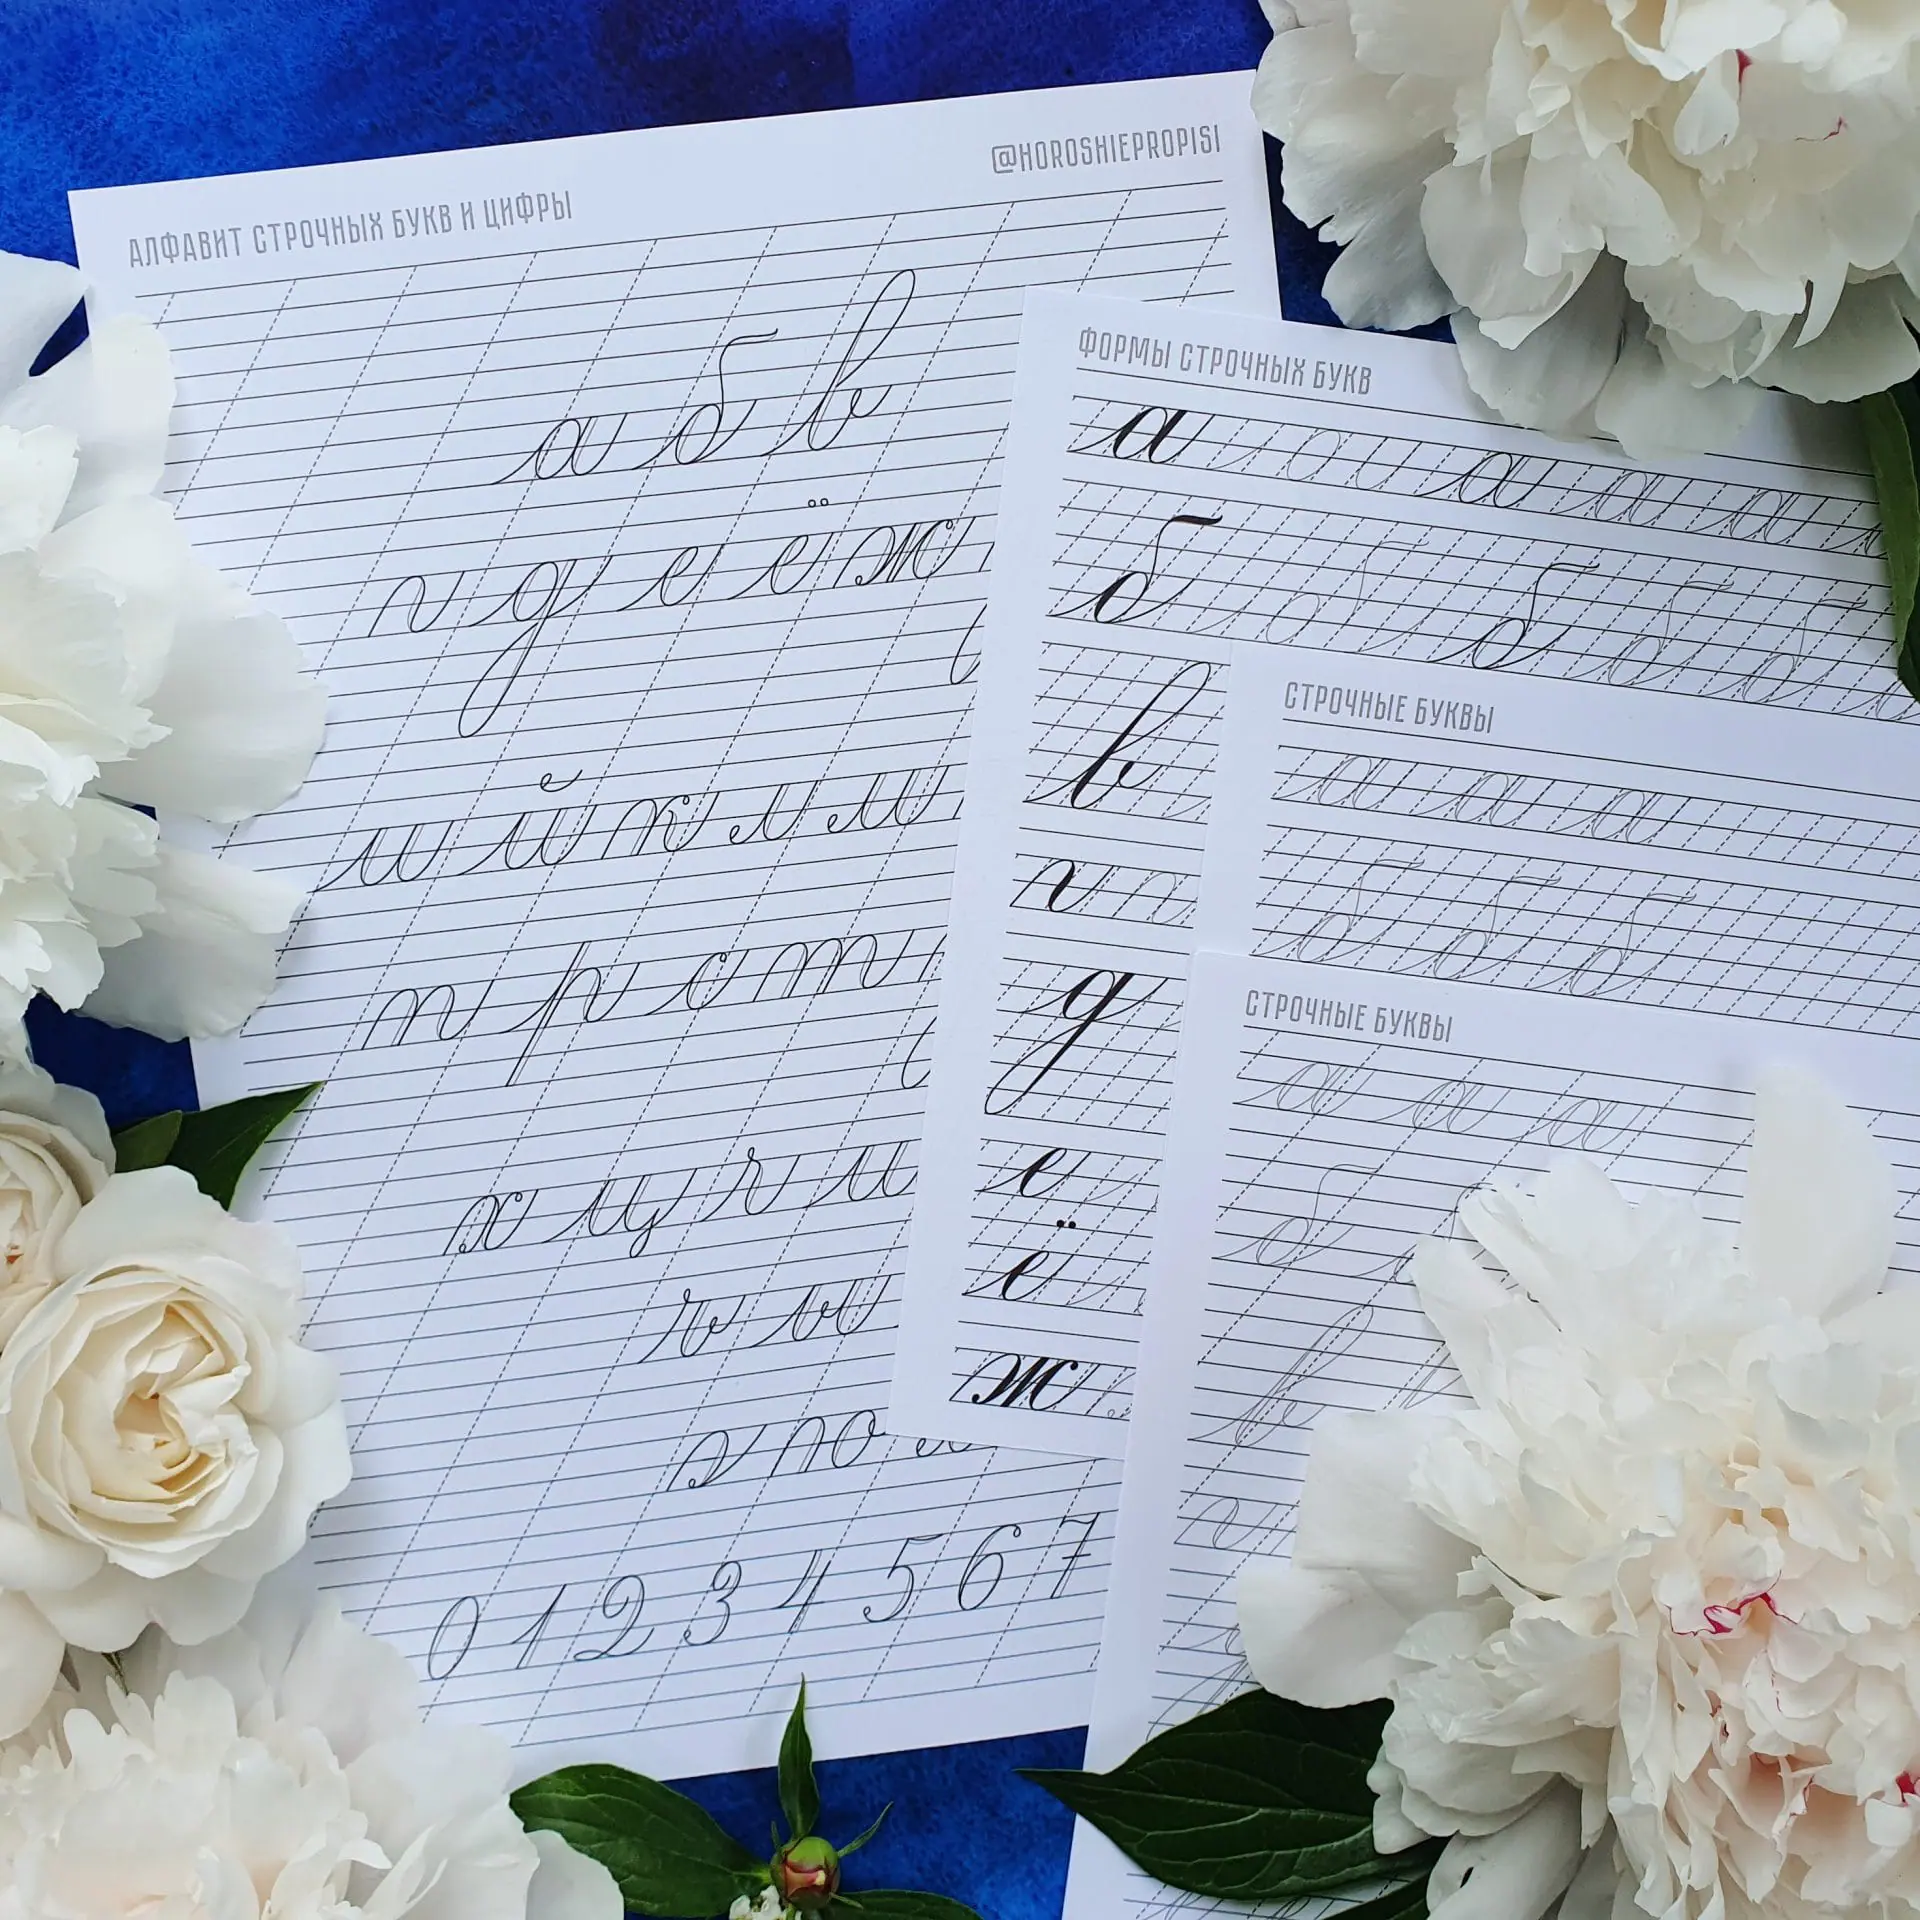 АЛФАВИТ СТРОЧНЫХ БУКВ И ЦИФРЫ
@HOROSHIEPROPISI
а б в
г д е ё ж
и й к л м
п р с т
х ц ч
ъ ы
э ю
0 1 2 3 4 5 6 7
ФОРМЫ СТРОЧНЫХ БУКВ
а а а а
б б б б
в
г г
д
е
ё
ж
СТРОЧНЫЕ БУКВЫ
а а а
б б б
СТРОЧНЫЕ БУКВЫ
а а а
б
в
г